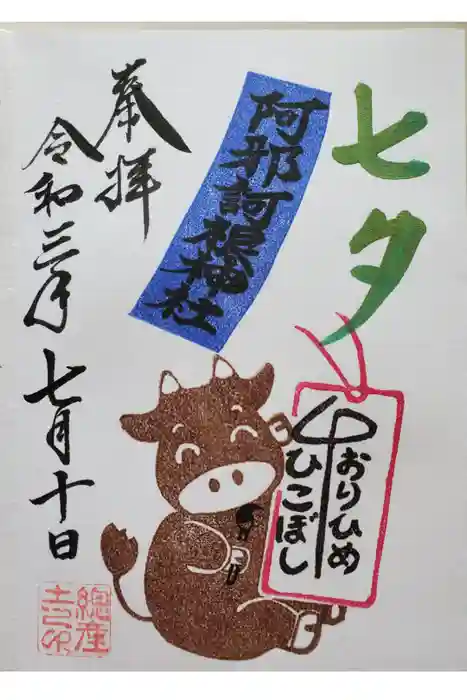 七夕
おりひめ
ひこぼし
阿邪訶根神社
奉拝
令和三年七月十日
總産
土印